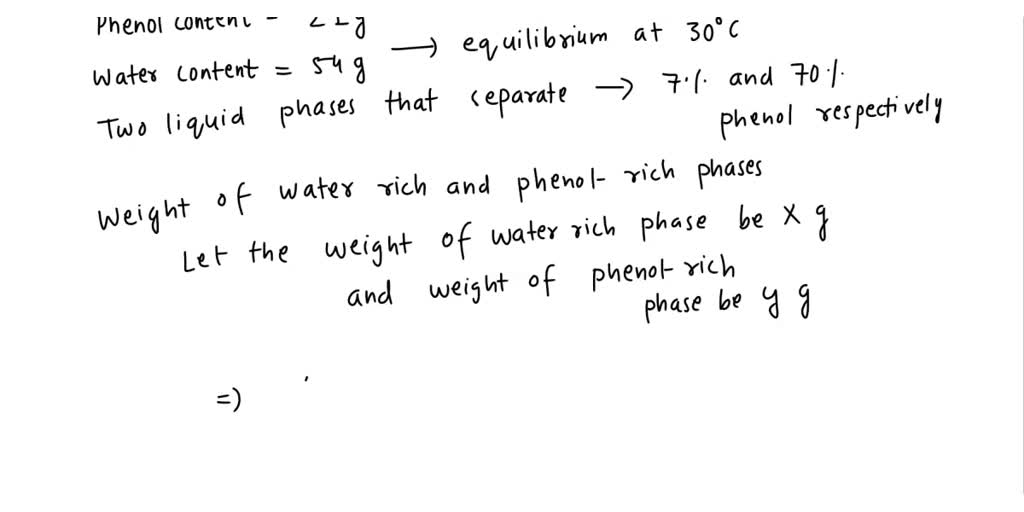 Phenol content =
Water content = 54 g → equilibrium at 30°C
Two liquid phases that separate → 7% and 70%
phenol respectively
Weight of water rich and phenol-rich phases
Let the weight of water rich phase be x g
and weight of phenol-rich
phase be y g
=)